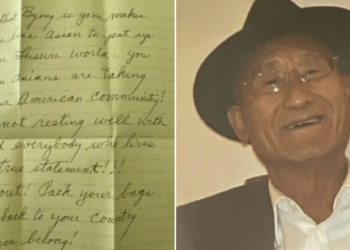 that Byong is gone makes
less Asian to put up
in Leisure World.. you
Asians are taking
our American Community!
not resting well with
d everybody who lives
true statement!!!
out! Pack your bags
back to your Country
you belong!